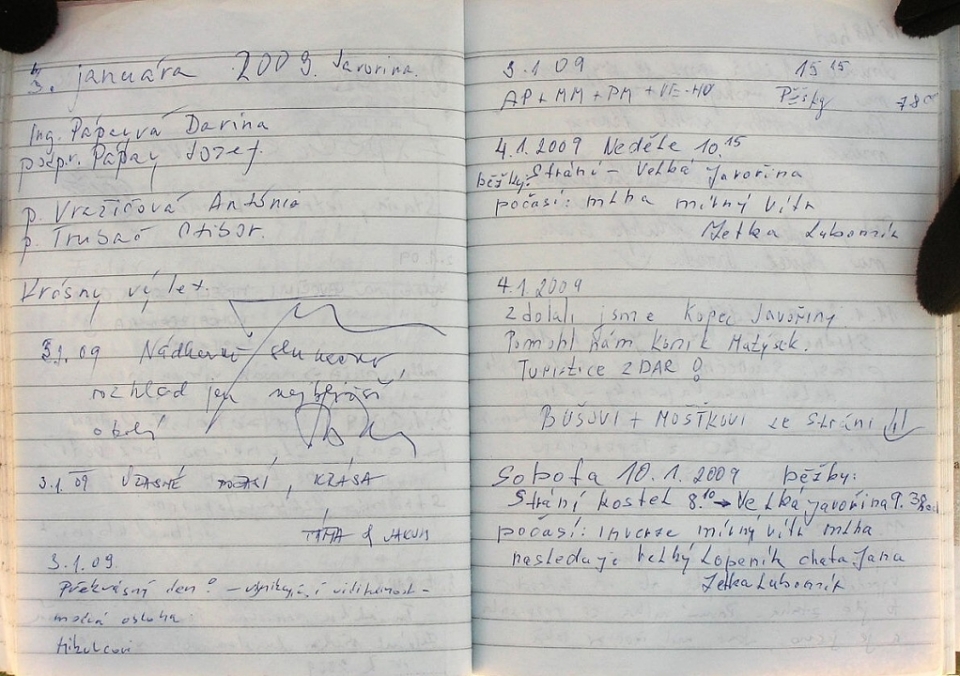 3. januára 2009. Javorina.
Ing. Pápayvá Darina
podpr. Pápay Jozef.
p. Vražičová Antónia
p. Trubač Ctibor.
Krásny výlet.
3.1.09 Nádherné slunečno
rozhled jen nejbližší
okolí
3.1.09 ÚŽASNÉ POČASÍ, KRÁSA
TÁŇA & JAKUB
3.1.09.
Překrásný den! – vynikající viditelnost –
modrá obloha
Mikulcovi
3.1 09 15 15
AP + MM + PM + Pěšky
4.1.2009 Neděle 10.15
běžky: Strání – Velká Javořina
počasí: mlha mírný vítr
Jetka Lubomír
4.1.2009
Zdolali jsme kopec Javořiny.
Pomohl nám koník Matýsek.
Turistice ZDAR!
BUŠOVI + MOŠŤKOVI ze Strání
Sobota 10.1.2009 běžky:
Strání kostel 8.10 → Velká Javořina 9.38 hod
počasí: inverze mírný vítr mlha
následuje Velký Lopeník chata Jana
Jetka Lubomír